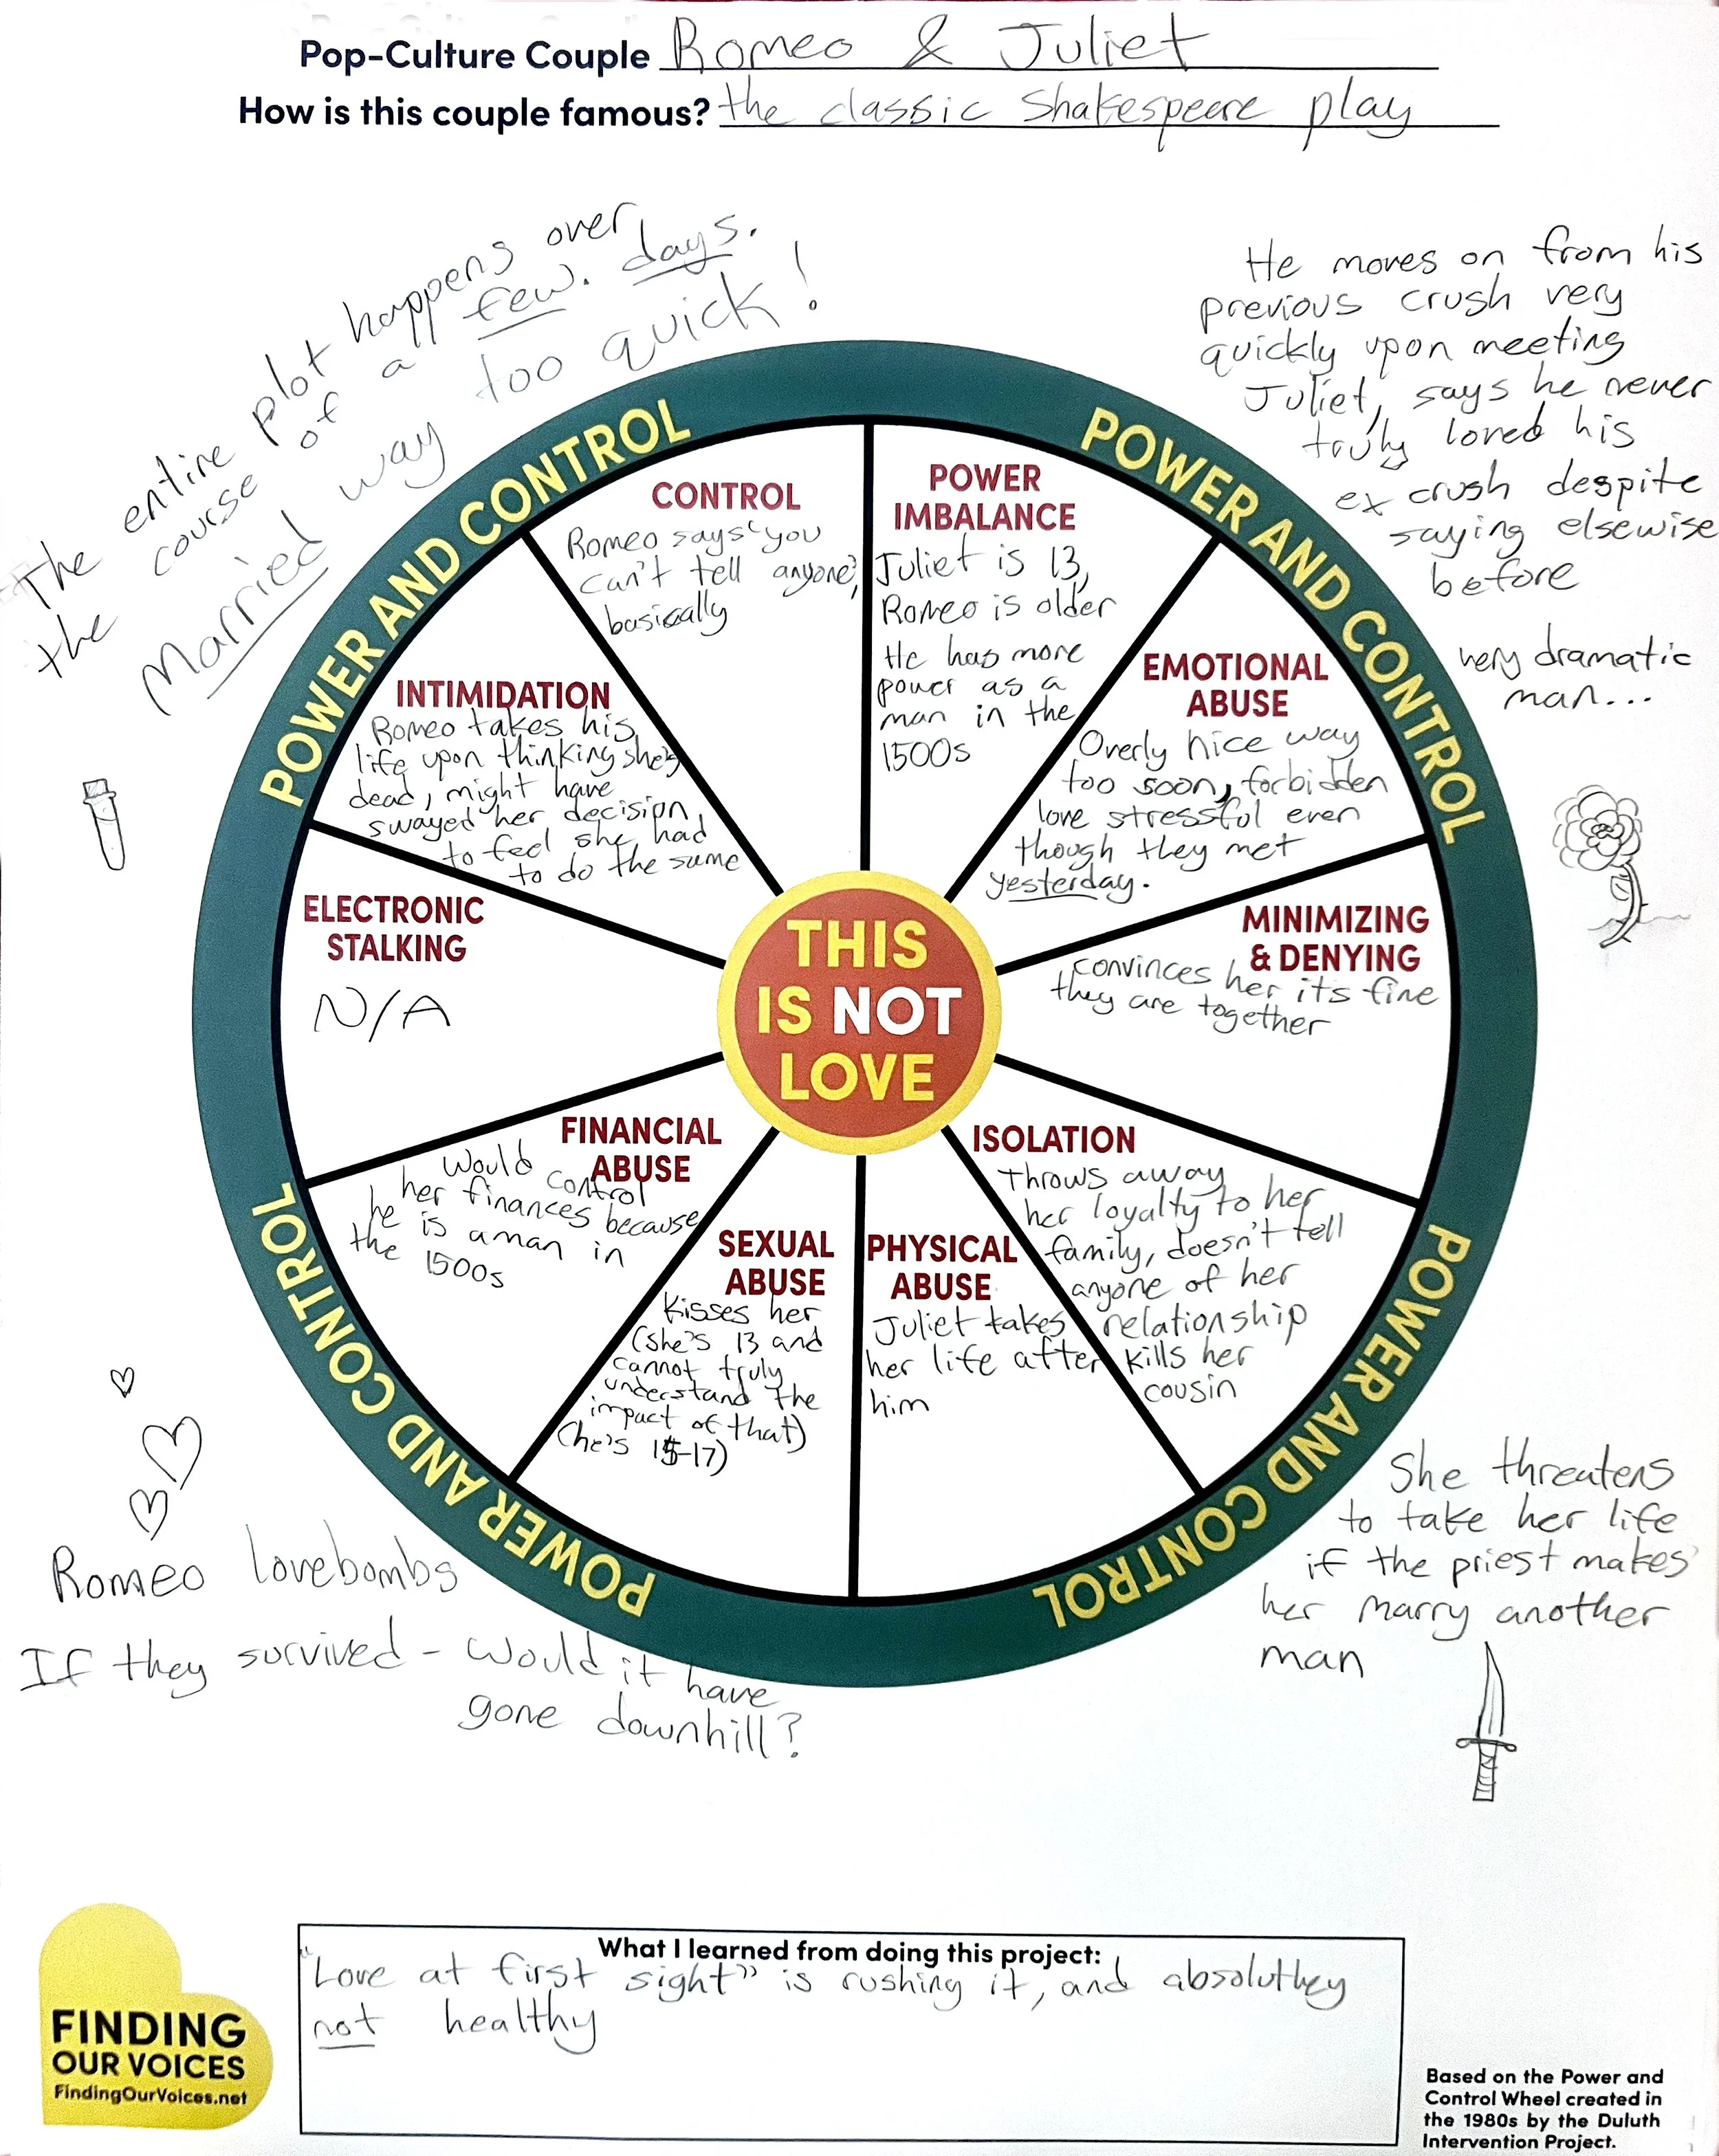 Pop-Culture Couple Romeo & Juliet
How is this couple famous? the classic Shakespeare play
The entire plot happens over
the course of a few. days.
Married way too quick!
He moves on from his
previous crush very
quickly upon meeting
Juliet, says he never
truly loved his
ex crush despite
saying elsewise
before
very dramatic
man...
POWER AND CONTROL
POWER AND CONTROL
POWER AND CONTROL
POWER AND CONTROL
CONTROL
Romeo says "you
can't tell anyone",
basically
POWER
IMBALANCE
Juliet is 13,
Romeo is older
He has more
power as a
man in the
1500s
EMOTIONAL
ABUSE
Overly nice way
too soon, forbidden
love stressful even
though they met
yesterday.
MINIMIZING
& DENYING
convinces her its fine
they are together
ISOLATION
Throws away
her loyalty to her
family, doesn't tell
anyone of her
relationship
kills her
cousin
PHYSICAL
ABUSE
Juliet takes
her life after
him
SEXUAL
ABUSE
Kisses her
(she's 13 and
cannot truly
understand the
impact of that)
(he's 15-17)
FINANCIAL
ABUSE
Would control
her finances because
he is a man in
the 1500s
ELECTRONIC
STALKING
N/A
INTIMIDATION
Romeo takes his
life upon thinking she's
dead, might have
swayed her decision
to feel she had
to do the same
THIS
IS NOT
LOVE
She threatens
to take her life
if the priest makes
her marry another
man
Romeo lovebombs
If they survived - would it have
gone downhill?
What I learned from doing this project:
"Love at first sight" is rushing it, and absoluthey
not healthy
FINDING
OUR VOICES
FindingOurVoices.net
Based on the Power and
Control Wheel created in
the 1980s by the Duluth
Intervention Project.